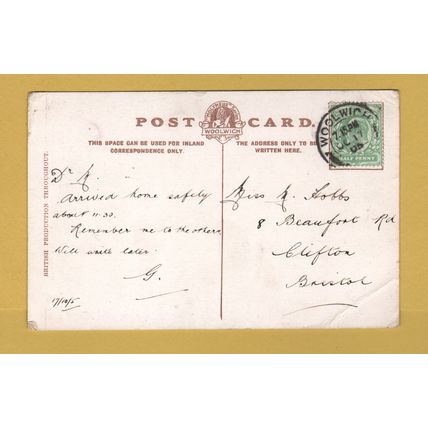 POST CARD.
WOOLWICH
THIS SPACE CAN BE USED FOR INLAND
CORRESPONDENCE ONLY.
THE ADDRESS ONLY TO BE
WRITTEN HERE.
BRITISH PRODUCTION THROUGHOUT.
WOOLWICH
HALF PENNY
Dr M.
Arrived home safely
about 11.30.
Remember me to the others
Will write later.
G.
Miss M. Hobbs
8 Beaufort Rd
Clifton
Bristol